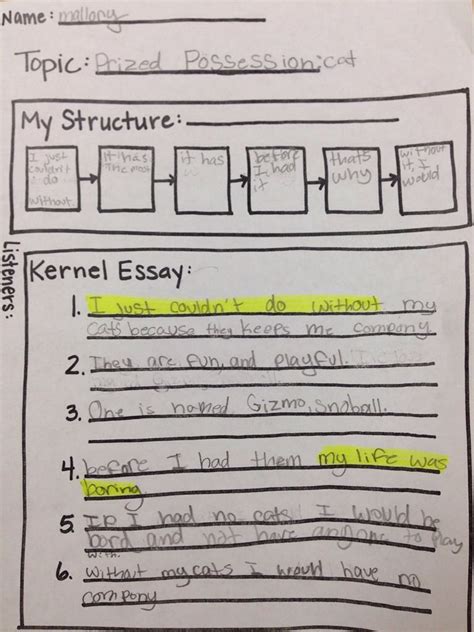 Name: mallory
Topic: Prized Possession: cat
My Structure:
I just couldn't do without.
it has the most
it has
before I had it
thats why
without it, I would
Listeners:
Kernel Essay:
1. I just couldn't do without my
cats because they keeps me company
2. They are fun, and playful.
3. One is named Gizmo, Snoball.
4. before I had them my life was
boring
5. If I had no cats I would be
bord and not have anyone to play
with.
6. without my cats I would have no
compony